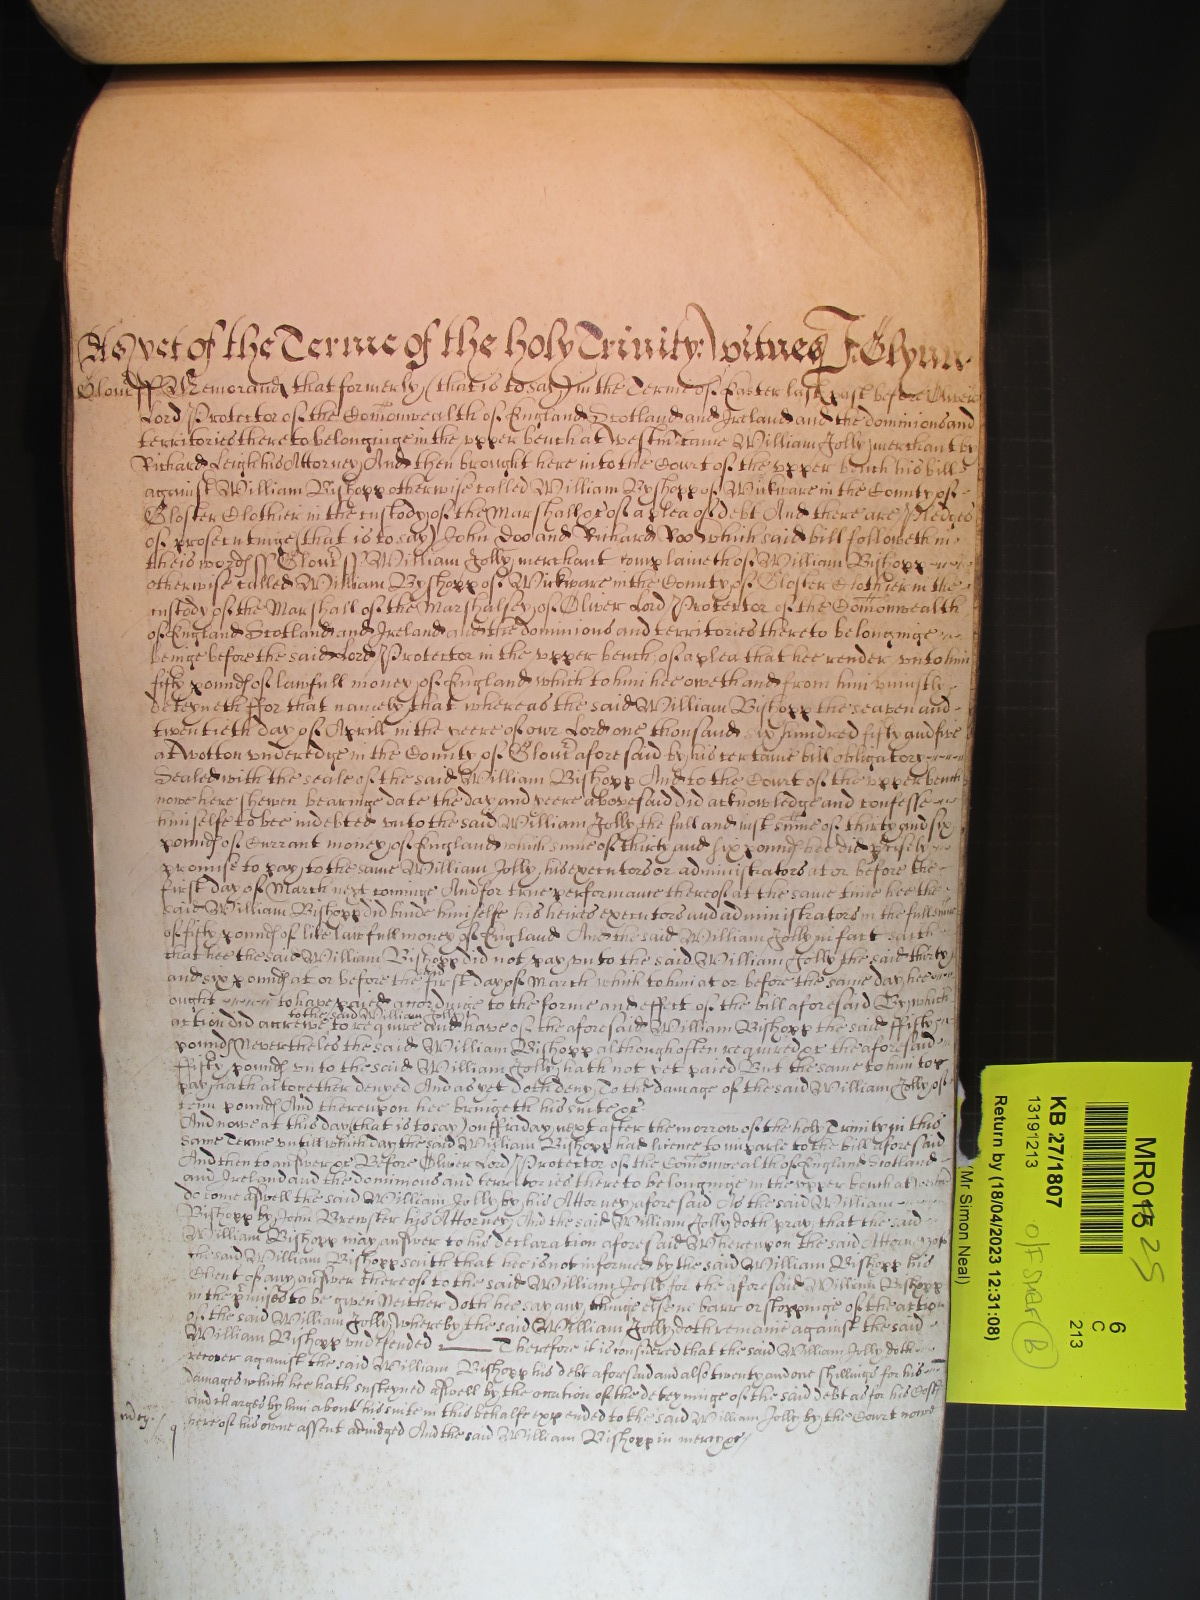 As yet of the Terme of the holy Trinity: witnes J: Glynn
Glouc ss Memorand that formerly (that is to say) in the Terme of Easter last past before Oliver
Lord Protector of the Comonwealth of England Scotland and Ireland and the dominions and
territories thereto belonginge in the upper bench at Westm came William Jolly merchant by
Richard Leigh his Attorney And then brought here into the Court of the upper bench his bill
against William Bishopp otherwise called William Byshopp of Wickware in the County of
Gloster Clothier in the custody of the Marshall &c of a plea of debt And there are Pledges
of prosecutinge (that is to say) John Doo and Richard Roo which said bill followeth in
theis words ss Glouc ss William Jolly merchant complaineth of William Bishopp
otherwise called William Byshopp of Wickware in the County of Gloster Clothier in the
custody of the Marshall of the Marshalsey of Oliver Lord Protector of the Comonwealth
of England Scotland and Ireland and the dominions and territories thereto belonginge
beinge before the said Lord Protector in the upper bench of a plea that hee render unto him
fifty pounds of lawfull money of England which to him hee oweth and from him uniustly
deteyneth ffor that namely that whereas the said William Bishopp the seaven and
twentieth day of Aprill in the yeere of our Lord one thousand six hundred fifty and five
at Wotton underedge in the County of Glouc aforesaid by his certaine bill obligatory
Sealed with the seale of the said William Bishopp And to the Court of the upper bench
nowe here shewen bearinge date the day and yeere abovesaid did acknowledge and confesse
himselfe to bee indebted unto the said William Jolly the full and iust sume of thirty and six
pounds of Currant money of England which sume of thirty and six pounds hee did
promise to pay to the same William Jolly his executors or administrators at or before the
first day of March next cominge And for true performance thereof at the same time hee the
said William Bishopp did binde himselfe his heires executors and administrators in the full sume
of fifty pounds of like lawfull money of England And the said William Jolly in fact saith
that hee the said William Bishopp did not pay unto the said William Jolly the said thirty
and six pounds at or before the first day of March which to him at or before the same day hee
ought to have payed accordinge to the forme and effect of the bill aforesaid By which
to the said William Jolly
action did accrewe to require and have of the aforesaid William Bishopp the said ffifty
pounds Neverthelesse the said William Bishopp although often required &c the aforesaid
ffifty pounds unto the said William Jolly hath not yet paied But the same to him to
pay hath altogether denyed And as yet doth deny To the damage of the said William Jolly of
tenn pounds And thereupon hee bringeth his suite &c
And nowe at this day (that is to say) on ffriday next after the morrow of the holy Trinity in this
same Terme untill which day the said William Bishopp had licence to imparle to the bill aforesaid
And then to answer &c Before Oliver Lord Protector of the Comonwealth of England Scotland
and Ireland and the dominions and territories there to belonginge in the upper bench at
do come aswell the said William Jolly by his Attorney aforesaid As the said William
Bishopp by John Brewster his Attorney And the said William Jolly doth pray that the said
William Bishopp may answer to his declaration aforesaid Whereupon the said Attorney of
the said William Bishopp saith that hee is not informed by the said William Bishopp his
Client of any answer thereof to the said William Jolly for the aforesaid William Bishopp
in the pmises to be given Neither doth hee say any thinge else in barr or stoppinge of the action
of the said William Jolly whereby the said William Jolly doth remaine against the said
William Bishopp undefended Therefore it is considered that the said William Jolly doth
recover against the said William Bishopp his debt aforesaid and also twenty and one shillings for his
damages which hee hath susteyned aswell by the occation of the deteyninge of the said debt as for his Costs
and charges by him about his suite in this behalfe expended to the said William Jolly by the Court nowe
here of his owne assent adiudged And the said William Bishopp in mercy &c
MR01825
6
C
213
KB 27/1807
13191213
Return by (18/04/2023 12:31:08)
(Mr Simon Neal)
B